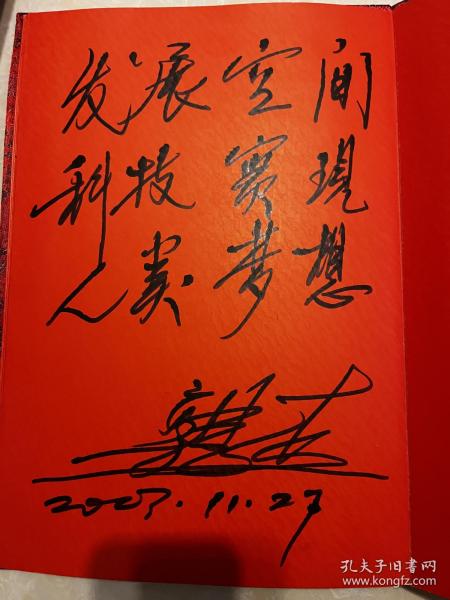 发展空间
科技实現
人类梦想
2003.11.27
孔夫子旧书网
www.kongfz.com